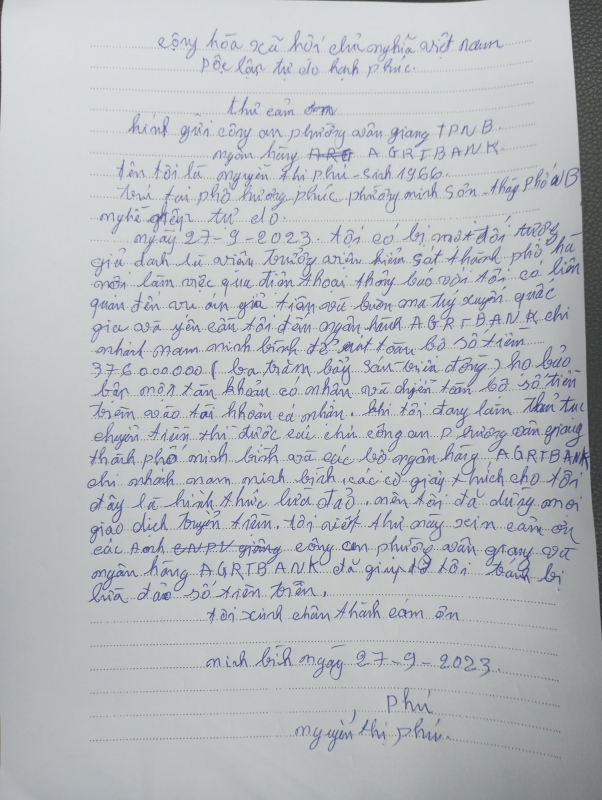 cộng hòa xã hội chủ nghĩa việt nam
Độc lập tự do hạnh phúc.
thư cảm ơn
kính gửi công an phường vân giang TPNB.
ngân hàng AGRIBANK
tên tôi là nguyễn thị phú - sinh 1966
trú tại phố hương phúc, phường ninh sơn. thành phố NB
nghề nghiệp tự do.
ngày 27-9-2023. tôi có bị một đối tượng
giả danh là viện trưởng viện kiểm sát thành phố hà
nội làm việc qua điện thoại thông báo với tôi có liên
quan đến vụ án giữ tiền và buôn ma túy xuyên quốc
gia và yêu cầu tôi đến ngân hành AGRIBANK chi
nhánh nam ninh bình để rút toàn bộ số tiền
376000000 (ba trăm bảy sáu triệu đồng) họ bảo
lập một tài khoản cá nhân và chuyển toàn bộ số tiền
trên vào tài khoản cá nhân. khi tôi đang làm thủ tục
chuyển tiền thì được các chú công an phường vân giang
thành phố ninh bình và các bộ ngân hàng AGRIBANK
chi nhánh nam ninh bình, các cô giải thích cho tôi
đây là hình thức lừa đảo. nên tôi đã dừng mọi
giao dịch chuyển tiền. tôi viết thư này xin cảm ơn
các anh công an phường vân giang và
ngân hàng AGRIBANK đã giúp đỡ tôi tránh bị
lừa đảo số tiền trên.
tôi xin chân thành cám ơn
ninh bình ngày 27-9-2023.
Phú
nguyễn thị phú.